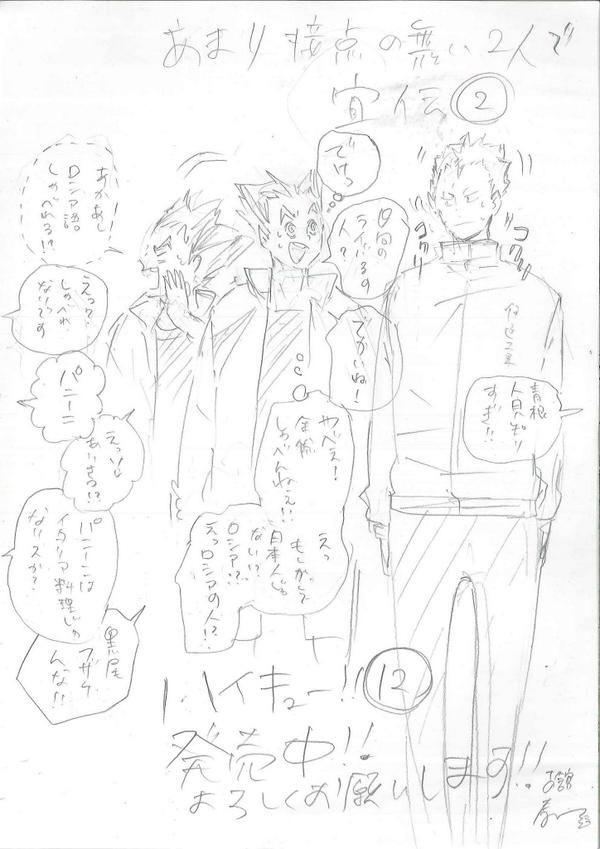 あまり接点の無い2人で
宣伝②
でけっ
日向の
ライバルの
人?
でかいね!
ゴゴゴ
ゴゴゴ
伊達工業
青根
人見知り
すぎ!!
やべえ!
全然
しゃべんねぇ!!
えっ
もしかして
日本人じゃ
ない!?
ロシア?
えっロシアの人!?
あかあし
ロシア語
しゃべれる!?
えっ?
しゃべれ
ないです
パニーニ
えっい
あいさつ!?
パニーニは
イタリア料理じゃ
ないスか?
黒尾
フザケ
んな!!
ハイキュー!!⑫
発売中!!
よろしくお願いします!!
古舘
春一